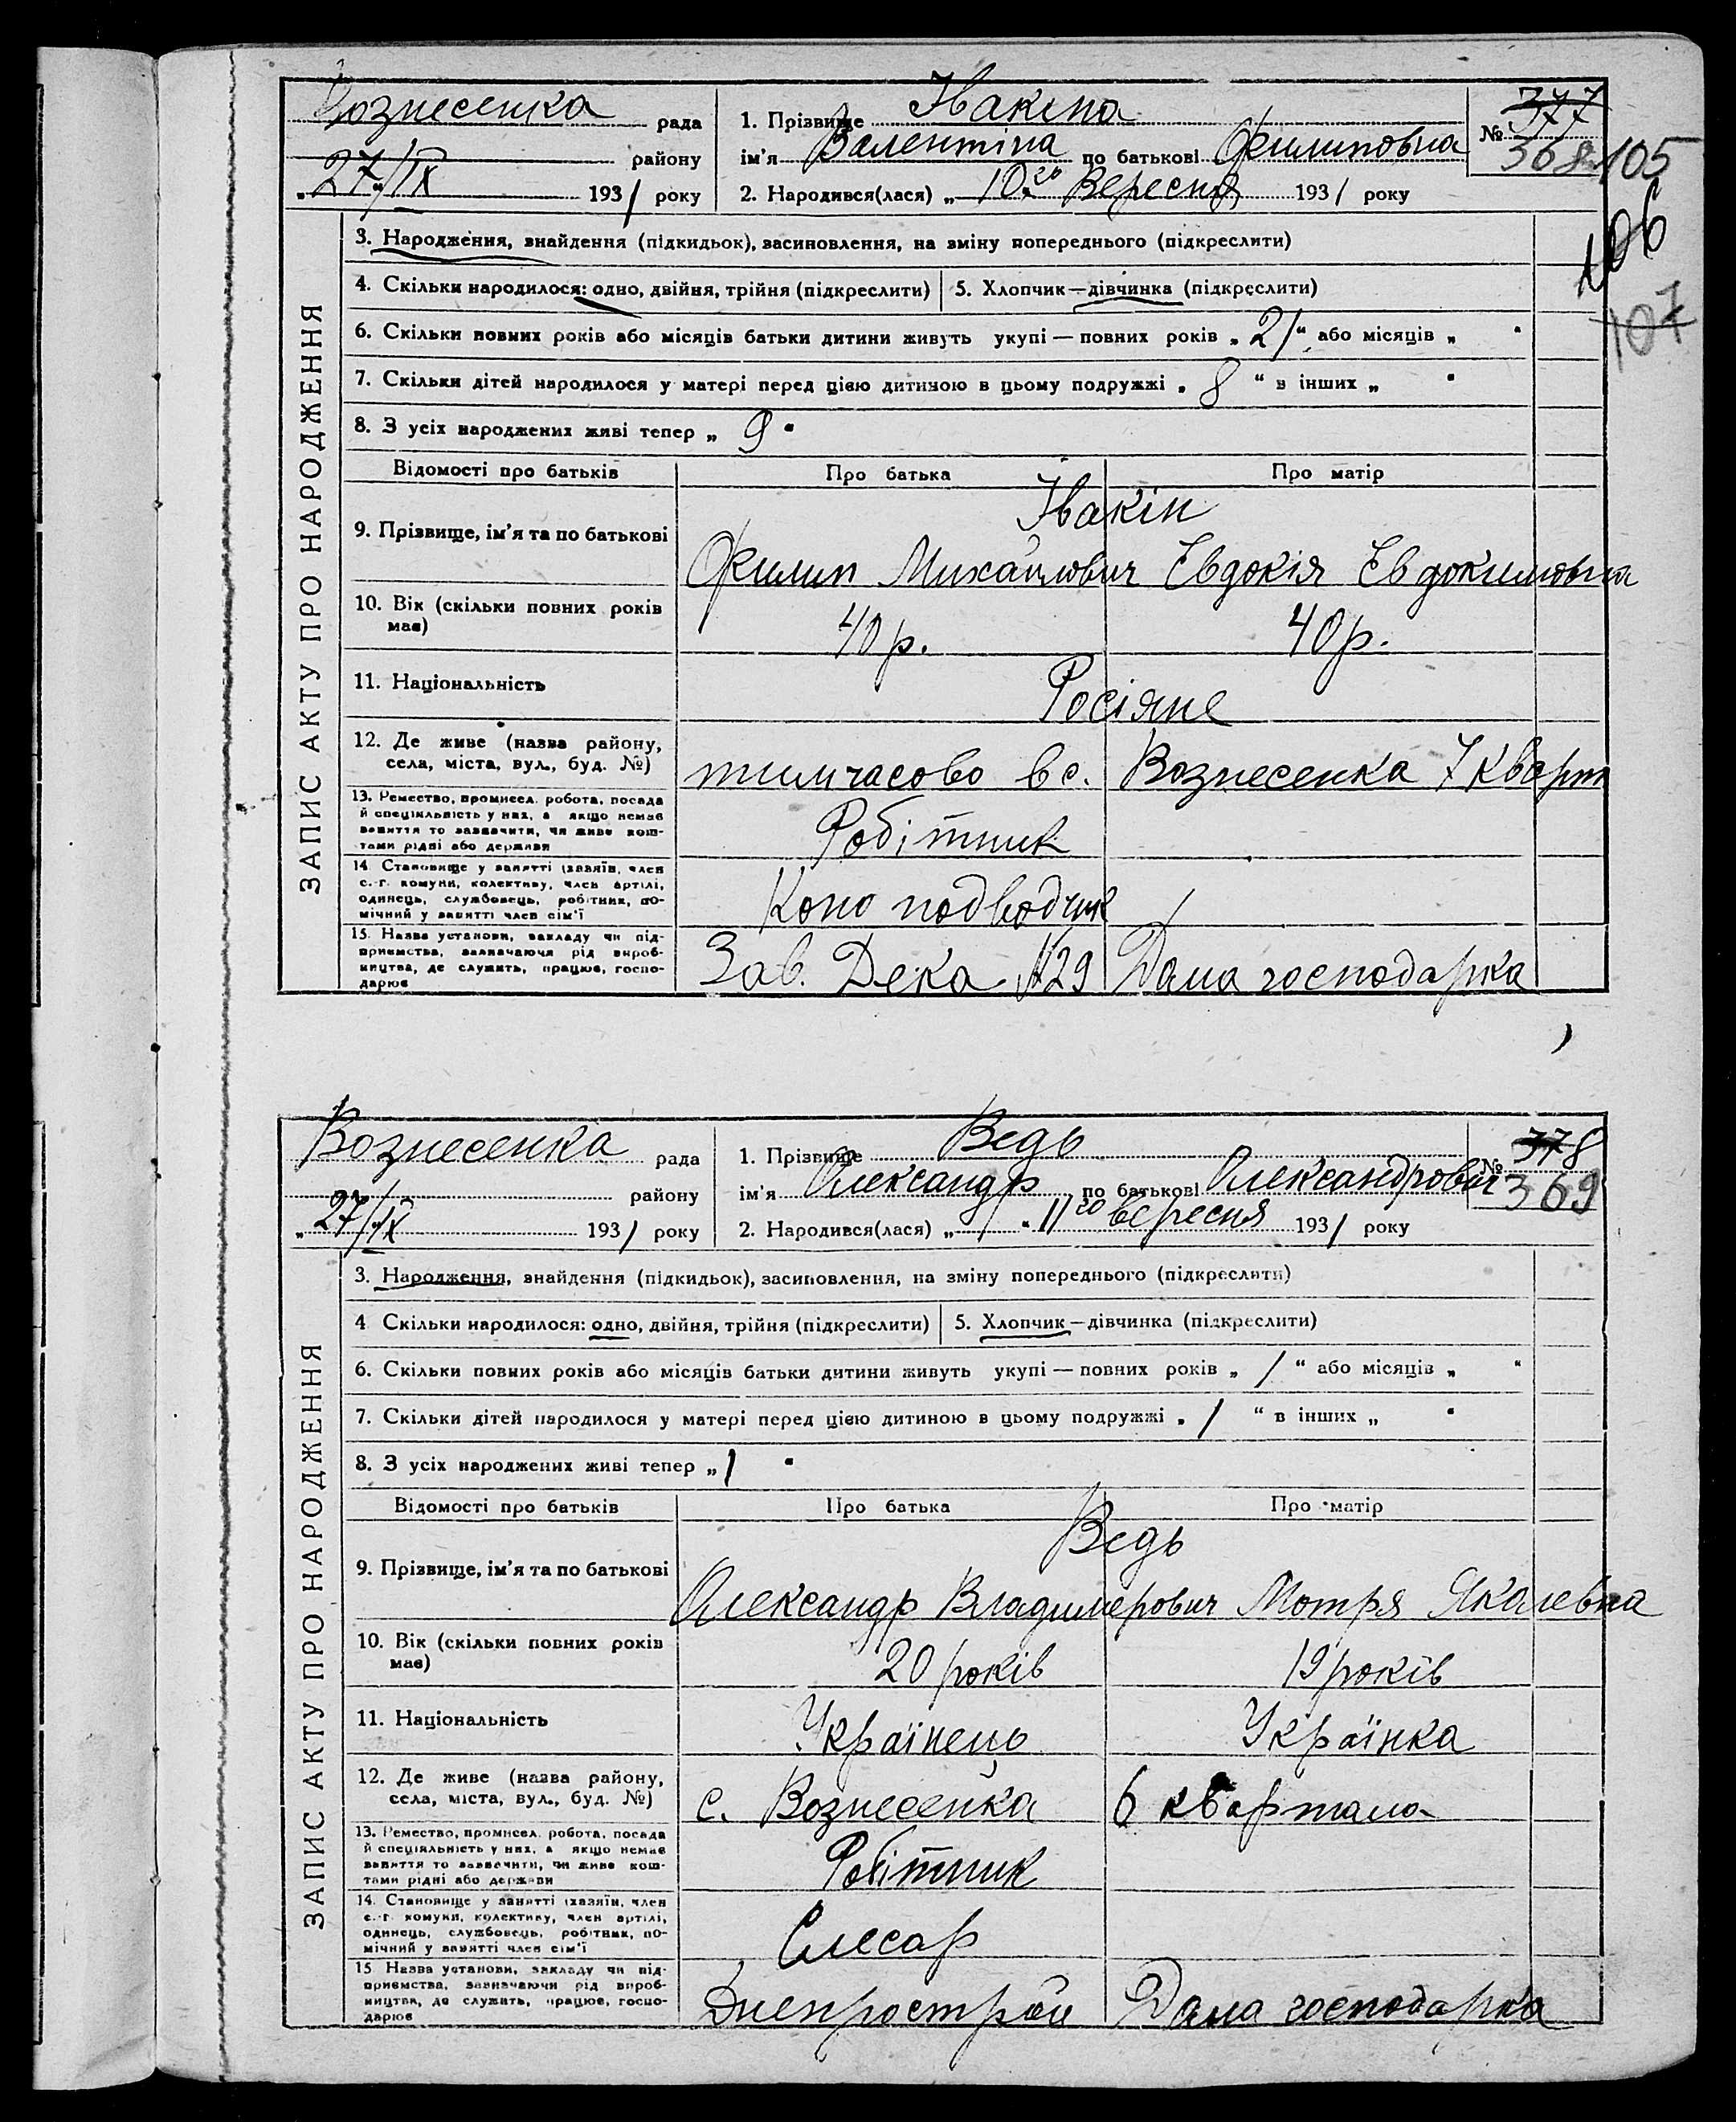 Вознесенка рада
району
„27/IX 1931 року
1. Прізвище Івакіна
ім'я Валентіна по батькові Филиповна
2. Народився(лася) „ 10го Вересня 1931 року
№ 377
368
105
106
107
ЗАПИС АКТУ ПРО НАРОДЖЕННЯ
3. Народження, знайдення (підкидьок), засиновлення, на зміну попереднього (підкреслити)
4. Скільки народилося: одно, двійня, трійня (підкреслити) 5. Хлопчик—дівчинка (підкреслити)
6. Скільки повних років або місяців батьки дитини живуть укупі — повних років „ 21 “ або місяців „ “
7. Скільки дітей народилося у матері перед цією дитиною в цьому подружжі „ 8 “ в інших „ “
8. З усіх народжених живі тепер „ 9 “
Відомості про батьків Про батька Про матір
Івакін
9. Прізвище, ім'я та по батькові Филип Михайлович Євдокія Євдокимовна
10. Вік (скільки повних років має) 40 р. 40 р.
11. Національність Росіяне
12. Де живе (назва району, села, міста, вул., буд. №) тимчасово в с. Вознесенка 7 Кварт
13. Ремество, промисел, робота, посада й спеціяльність у них, а якщо немає
заняття то зазначити, чи живе кош-
тами рідні або держави
Робітник
14. Становище у занятті (хазяїн, член
с.-г. комуни, колективу, член артілі,
одинець, службовець, робітник, по-
мічний у занятті член сім'ї
Коно подводчик
15. Назва установи, закладу чи під-
приємства, зазначаючи рід вироб-
ництва, де служить, працює, госпо-
дарює
Зав. Дека №29 Дама господарка
Вознесенка рада
району
„27/IX 1931 року
1. Прізвище Ведь
ім'я Олександр по батькові Олександрович
2. Народився(лася) „ “ 11го вересня 1931 року
№ 378
369
ЗАПИС АКТУ ПРО НАРОДЖЕННЯ
3. Народження, знайдення (підкидьок), засиновлення, на зміну попереднього (підкреслити)
4 Скільки народилося: одно, двійня, трійня (підкреслити) 5. Хлопчик—дівчинка (підкреслити)
6. Скільки повних років або місяців батьки дитини живуть укупі — повних років „ 1 “ або місяців „ “
7. Скільки дітей народилося у матері перед цією дитиною в цьому подружжі „ 1 “ в інших „ “
8. З усіх народжених живі тепер „ 1 “
Відомості про батьків Про батька Про матір
Ведь
9. Прізвище, ім'я та по батькові Олександр Владимерович Мотря Якалевна
10. Вік (скільки повних років має) 20 років 19 років
11. Національність Українець Українка
12. Де живе (назва району, села, міста, вул., буд. №) с. Вознесенка 6 квартала
13. Ремество, промисел, робота, посада
й спеціяльність у них, а якщо немає
заняття то зазначити, чи живе кош-
тами рідні або держави
Робітник
14. Становище у занятті (хазяїн, член
с.-г. комуни, колективу, член артілі,
одинець, службовець, робітник, по-
мічний у занятті член сім'ї
Слесар
15 Назва установи, закладу чи під-
приємства, зазначаючи рід вироб-
ництва, де служить, працює, госпо-
дарює
Днепрострой Дама господарка